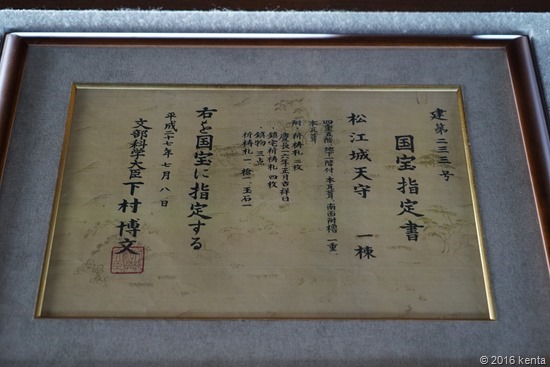 建第二三三号
国宝指定書
松江城天守 一棟
四重五階、地下一階付、本瓦葺、南面附櫓一重、
本瓦葺
附 祈祷札 二枚
慶長一六年正月吉祥日
鎮宅祈祷札 四枚
鎮物 三点
祈祷札一、槍一、玉石一
右を国宝に指定する
平成二十七年七月八日
文部科学大臣 下村博文
© 2016 kenta